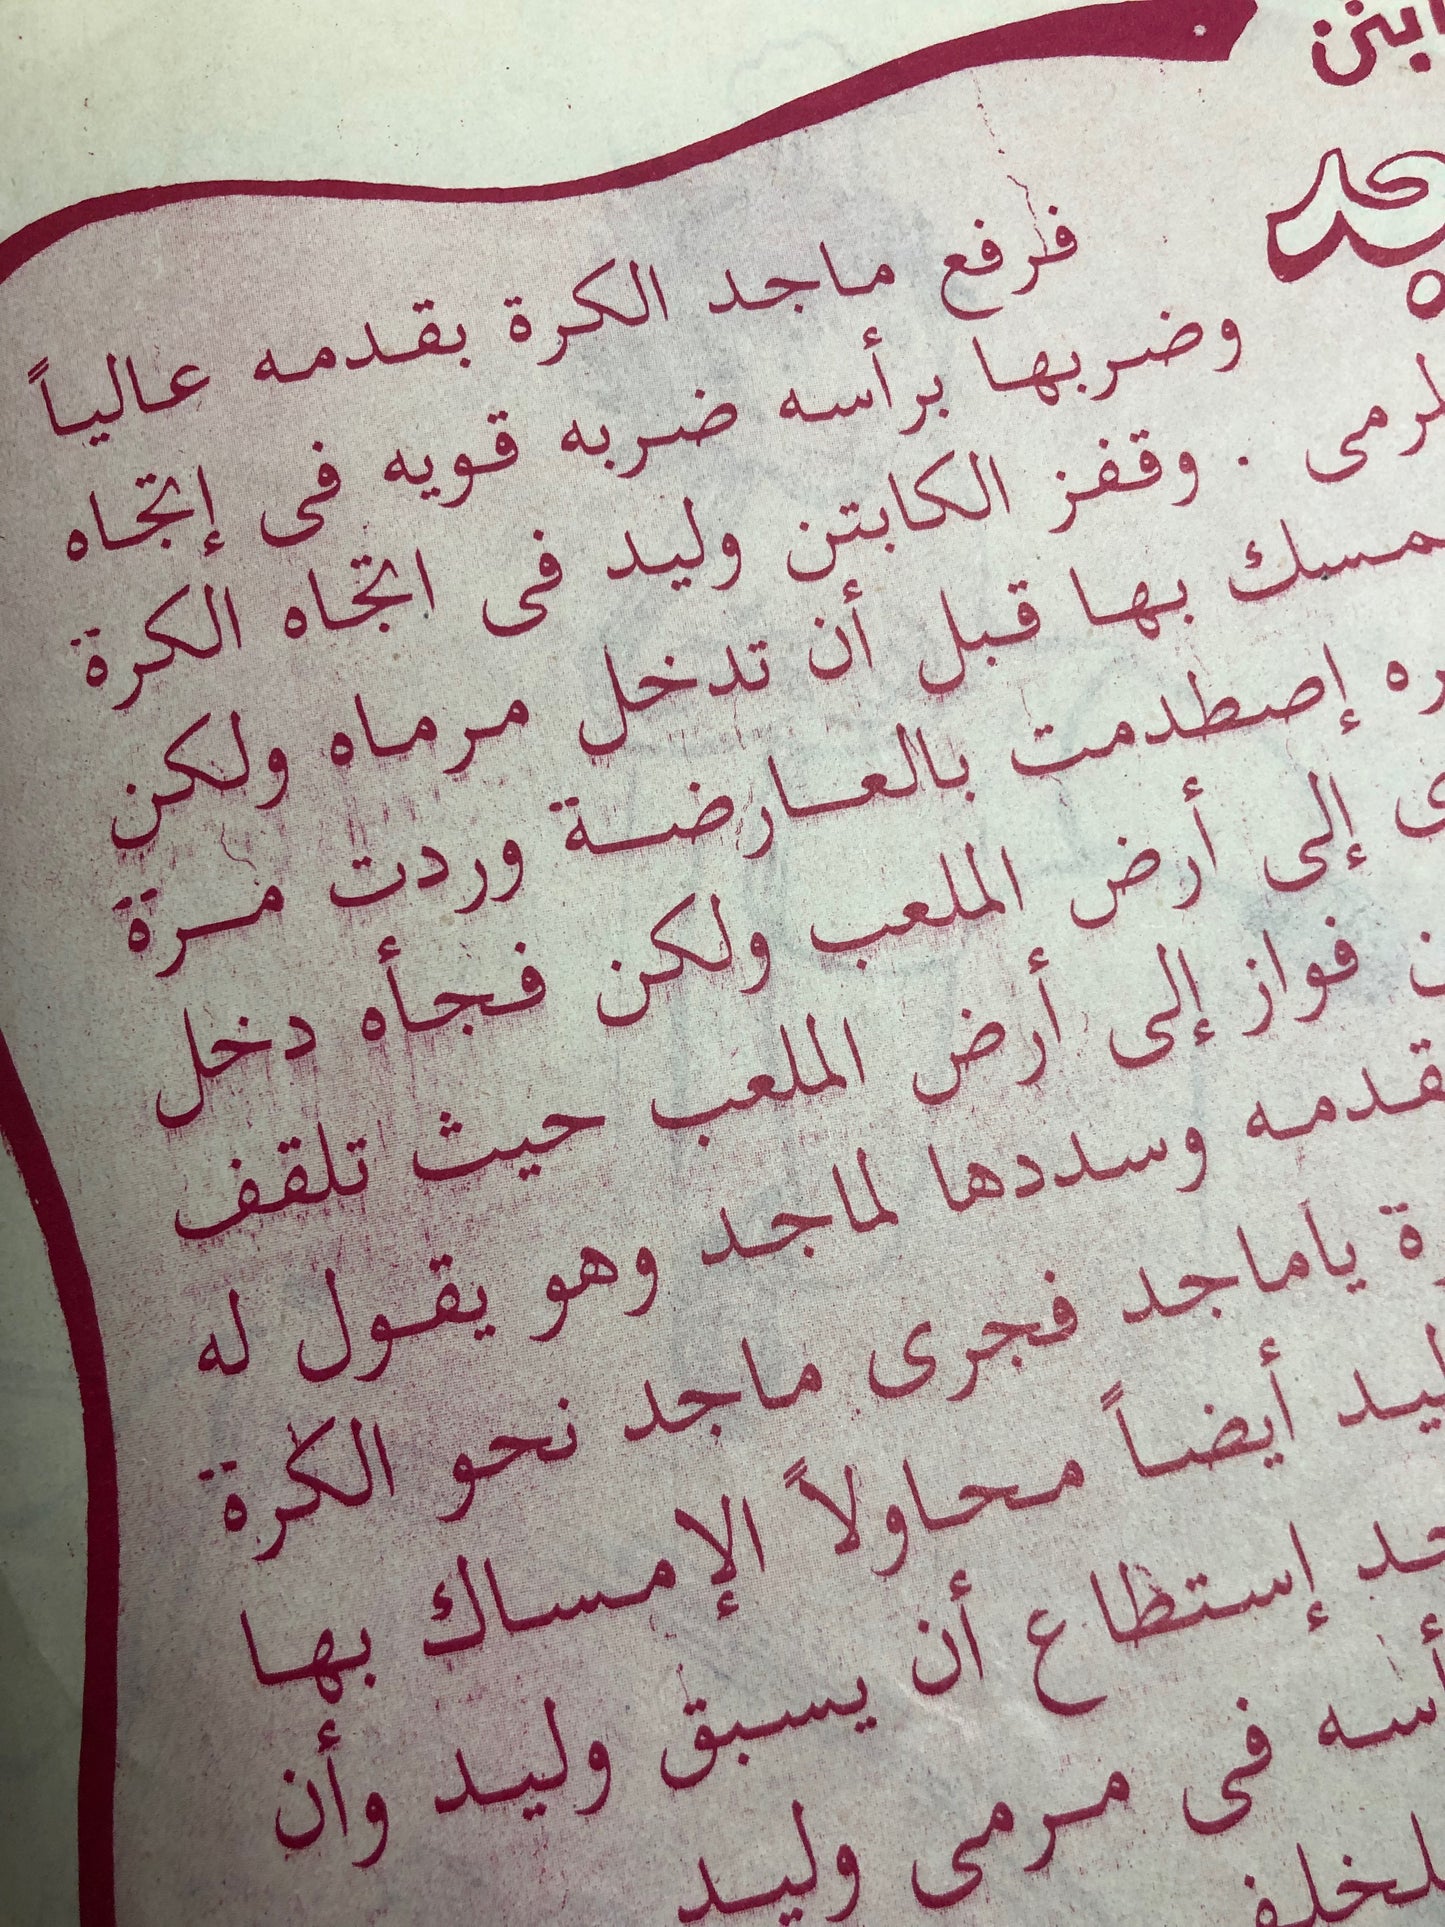 فرفع ماجد الكرة بقدمه عالياً
وضربها برأسه ضربه قويه فى إتجاه
. وقفز الكابتن وليد فى اتجاه الكرة
بها قبل أن تدخل مرماه ولكن
إصطدمت بالعارضة وردت مرة
إلى أرض الملعب ولكن فجأه دخل
فواز إلى أرض الملعب حيث تلقف
وسددها لماجد وهو يقول له
ياماجد فجرى ماجد نحو الكرة
أيضاً محاولاً الإمساك بها
إستطاع أن يسبق وليد وأن
فى مرمى وليد